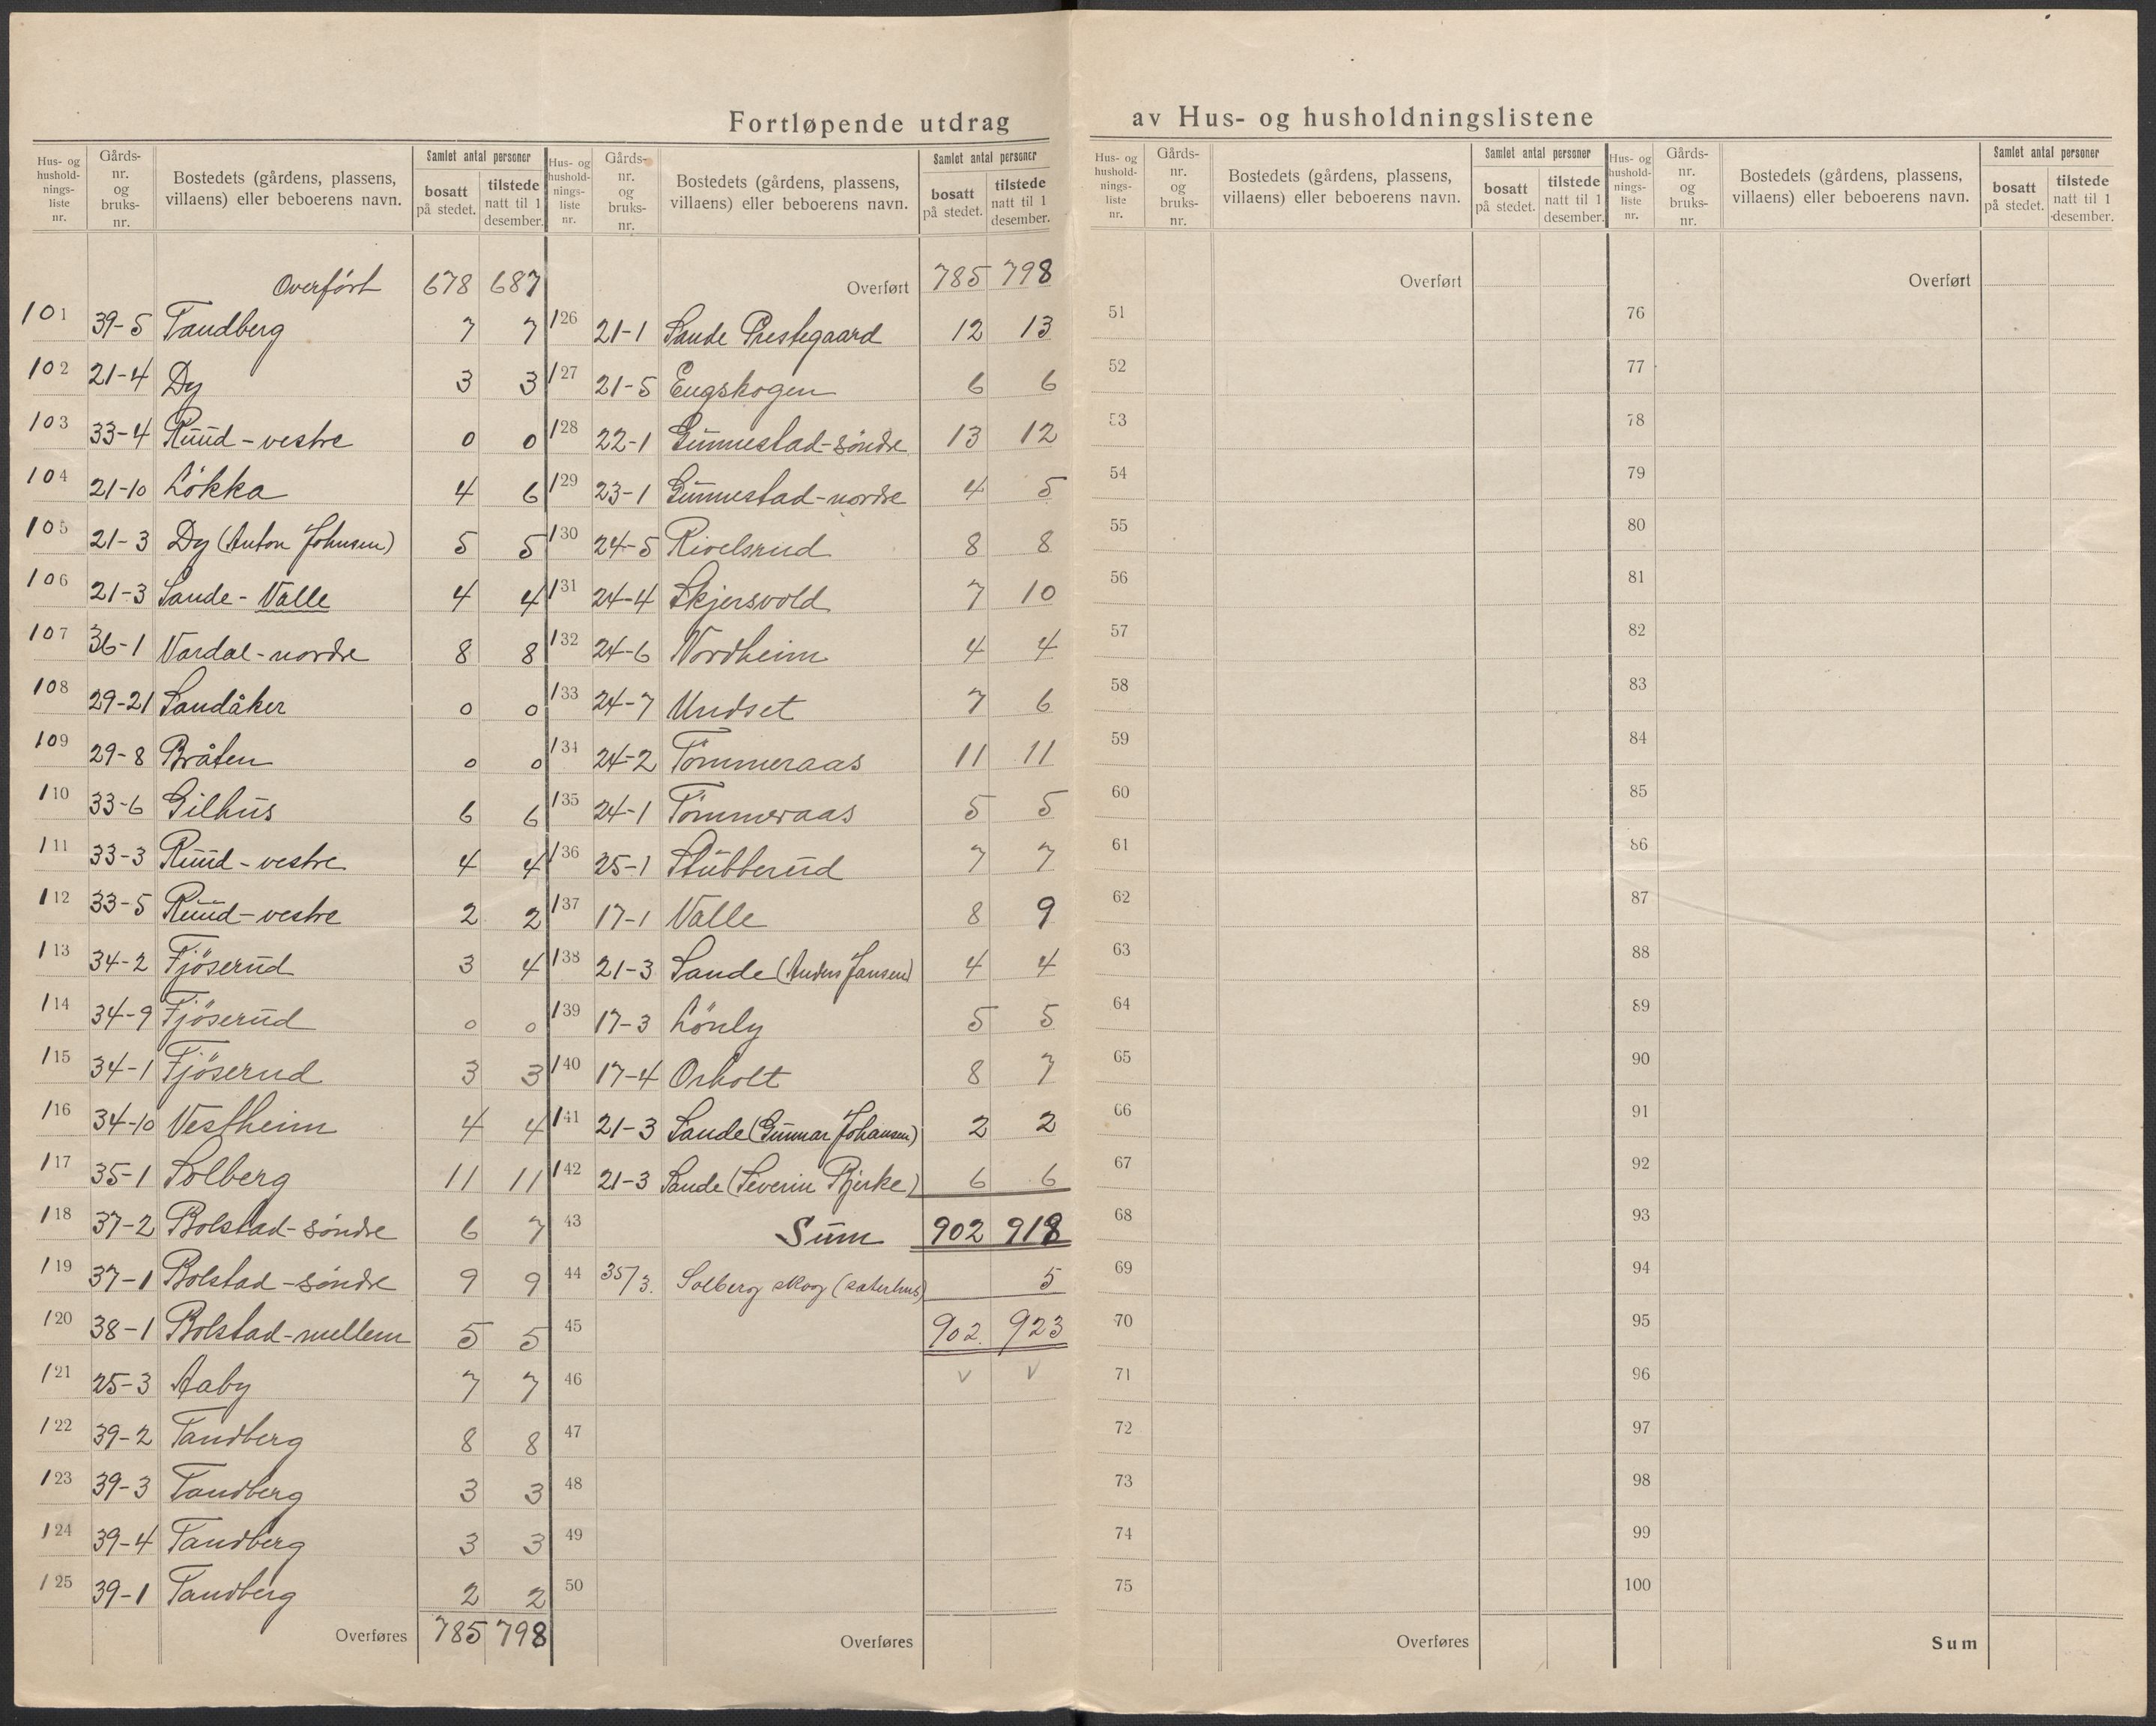 Fortløpende utdrag av Hus- og husholdningslistene
Hus- og husholdnings-liste nr. Gårds-nr. og bruks-nr. Bostedets (gårdens, plassens, villaens) eller beboerens navn. Samlet antal personer bosatt på stedet. tilstede natt til 1 desember.
Overført 678 687
101 39-5 Tandberg 7 7
102 21-4 Dy 3 3
103 33-4 Ruud - vestre 0 0
104 21-10 Løkka 4 6
105 21-3 Dy (Anton Johnsen) 5 5
106 21-3 Sande - Valle 4 4
107 36-1 Vardal - nordre 8 8
108 29-21 Sandåker 0 0
109 29-8 Bråten 0 0
110 33-6 Gilhus 6 6
111 33-3 Ruud - vestre 4 4
112 33-5 Ruud - vestre 2 2
113 34-2 Fjøserud 3 4
114 34-9 Fjøserud 0 0
115 34-1 Fjøserud 3 3
116 34-10 Vestheim 4 4
117 35-1 Solberg 11 11
118 37-2 Bolstad - søndre 6 7
119 37-1 Bolstad - søndre 9 9
120 38-1 Bolstad - mellem 5 5
121 25-3 Aaby 7 7
122 39-2 Tandberg 8 8
123 39-3 Tandberg 3 3
124 39-4 Tandberg 3 3
125 39-1 Tandberg 2 2
Overføres 785 798
Hus- og husholdnings-liste nr. Gårds-nr. og bruks-nr. Bostedets (gårdens, plassens, villaens) eller beboerens navn. Samlet antal personer bosatt på stedet. tilstede natt til 1 desember.
Overført 785 798
126 21-1 Sande Prestegaard 12 13
127 21-5 Engskogen 6 6
128 22-1 Gunnestad - søndre 13 12
129 23-1 Gunnestad - nordre 4 5
130 24-5 Rivelsrud 8 8
131 24-4 Skjersvold 7 10
132 24-6 Nordheim 4 4
133 24-7 Undset 7 6
134 24-2 Tømmeraas 11 11
135 24-1 Tømmeraas 5 5
136 25-1 Stubberud 7 7
137 17-1 Valle 8 9
138 21-3 Sande (Anders Jansen) 4 4
139 17-3 Lønly 5 5
140 17-4 Orholt 8 7
141 21-3 Sande (Gunnar Johansen) 2 2
142 21-3 Sande (Severin Bjerke) 6 6
43 Sum 902 918
44 35/3. Solberg skog (sæterhus) 5
45 902. 923
46 v v
47
48
49
50
Overføres
Hus- og husholdnings-liste nr. Gårds-nr. og bruks-nr. Bostedets (gårdens, plassens, villaens) eller beboerens navn. Samlet antal personer bosatt på stedet. tilstede natt til 1 desember.
Overført
51
52
53
54
55
56
57
58
59
60
61
62
63
64
65
66
67
68
69
70
71
72
73
74
75
Overføres
Hus- og husholdnings-liste nr. Gårds-nr. og bruks-nr. Bostedets (gårdens, plassens, villaens) eller beboerens navn. Samlet antal personer bosatt på stedet. tilstede natt til 1 desember.
Overført
76
77
78
79
80
81
82
83
84
85
86
87
88
89
90
91
92
93
94
95
96
97
98
99
100
Sum